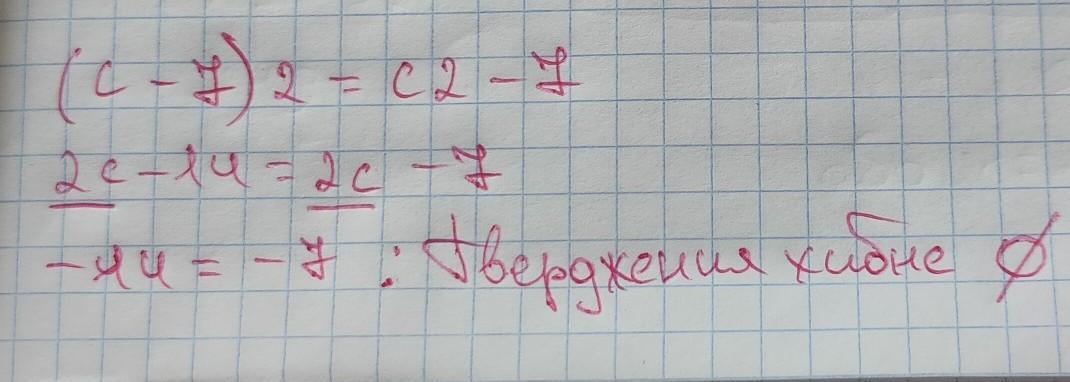 (c - 7) 2 = c2 - 7
2c - 14 = 2c - 7
- 14 = - 7 : Твердження хибне ∅